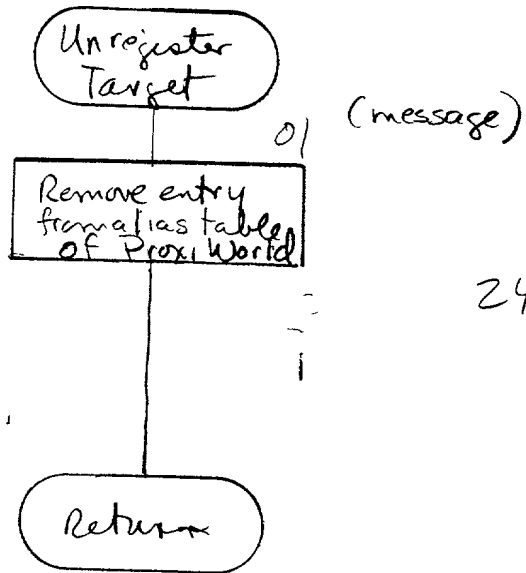 Unregister
Target
01
(message)
Remove entry
from alias table
of Proxi World
24
Return